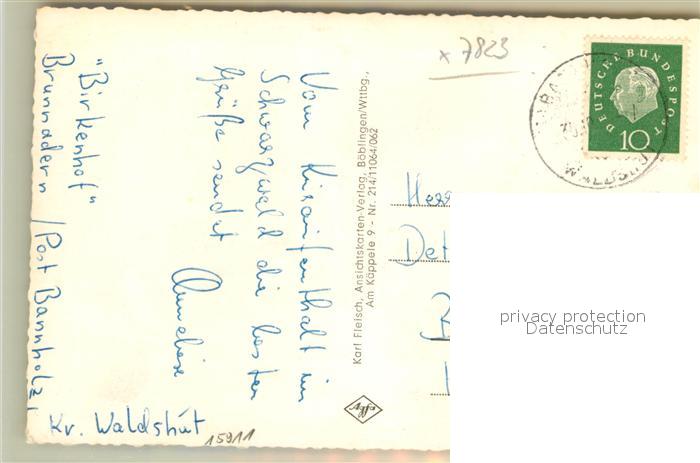 x 7823
DEUTSCHE BUNDESPOST
10
WALDSHUT
"Birkenhof"
Brunnadern /Post Bannholz,
Kr. Waldshut
15911
Vom Kuraufenthalt im
Schwarzwald die besten
Grüße sendet
Anneliese
Karl Fleisch, Ansichtskarten-Verlag, Böblingen/Wttbg.,
Am Käppele 9 - Nr. 214/11064/062
Agfa
Herr
Det
privacy protection
Datenschutz